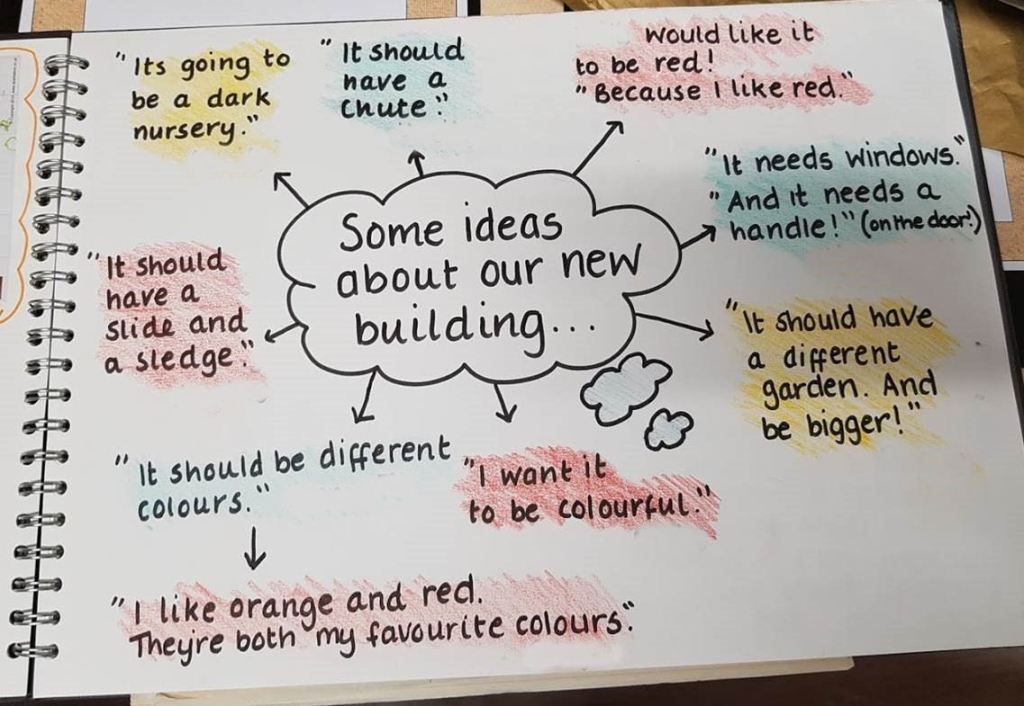 "Its going to
be a dark
nursery."
"It should
have a
chute."
Would like it
to be red!
"Because I like red."
"It needs windows."
"And it needs a
handle!" (on the door!)
Some ideas
about our new
building...
"It should
have a
slide and
a sledge."
"It should have
a different
garden. And
be bigger!"
"It should be different
colours."
"I want it
to be colourful."
"I like orange and red.
Theyre both my favourite colours."